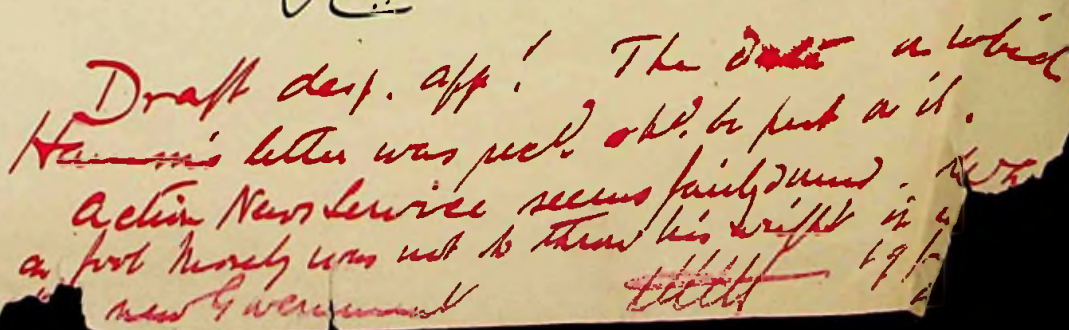 Draft desp. app! The date on which
Hamm's letter was recd. shd. be put on it.
Action News Service seems fairly
a fool Mosely was not to throw his weight in
new Government 19/